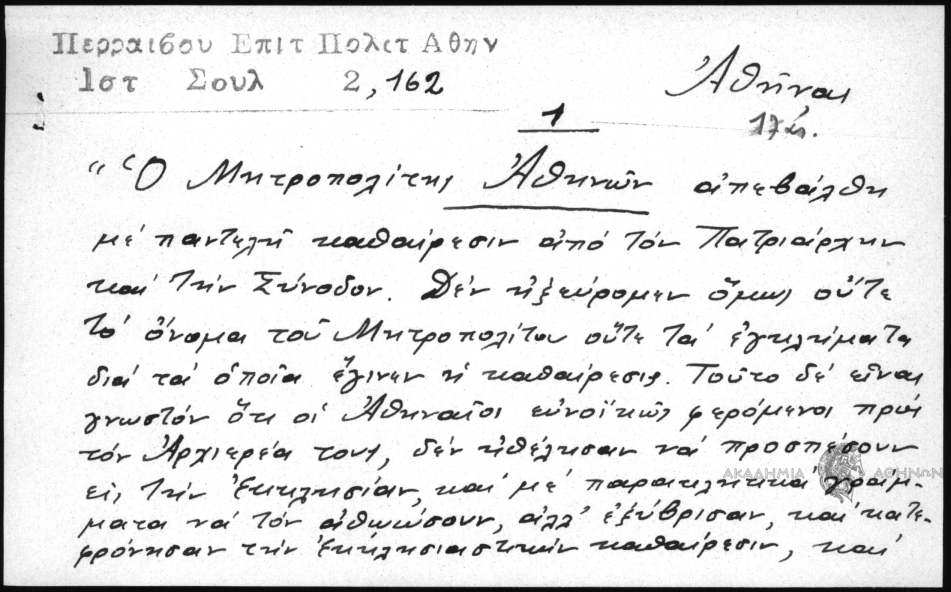 Περραιβου Επιτ Πολιτ Αθην
Ιστ Σουλ 2, 162
Ἀθῆναι
1
"Ὁ Μητροπολίτης Ἀθηνῶν ἀπεβάλθη
μέ παντελῆ καθαίρεσιν ἀπό τόν Πατριάρχην
καί τήν Σύνοδον. Δέν ἠξεύρομεν ὅμως οὔτε
τό ὄνομα τοῦ Μητροπολίτου οὔτε τά ἐγκλήματα
διά τά ὁποῖα ἔγινεν ἡ καθαίρεσις. Τοῦτο δέ εἶναι
γνωστόν ὅτι οἱ Ἀθηναῖοι εὐνοϊκῶς φερόμενοι πρός
τόν Ἀρχιερέα τους, δέν ἠθέλησαν νά προσπέσουν
εἰς τήν Ἐκκλησίαν, καί μέ παρακλητικά γράμ-
ματα νά τόν ἀθωώσουν, ἀλλ' ἐξύβρισαν, καί κατε-
φρόνησαν τήν ἐκκλησιαστικήν καθαίρεσιν, καί
ΑΚΑΔΗΜΙΑ ΑΘΗΝΩΝ